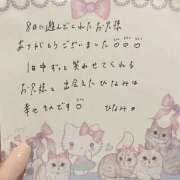 8日に遊んでくれたお兄様
ありがとうございました
1日中ずっと笑わせてくれる
お兄様と出会えたひなみは
幸せものです
ひなみ